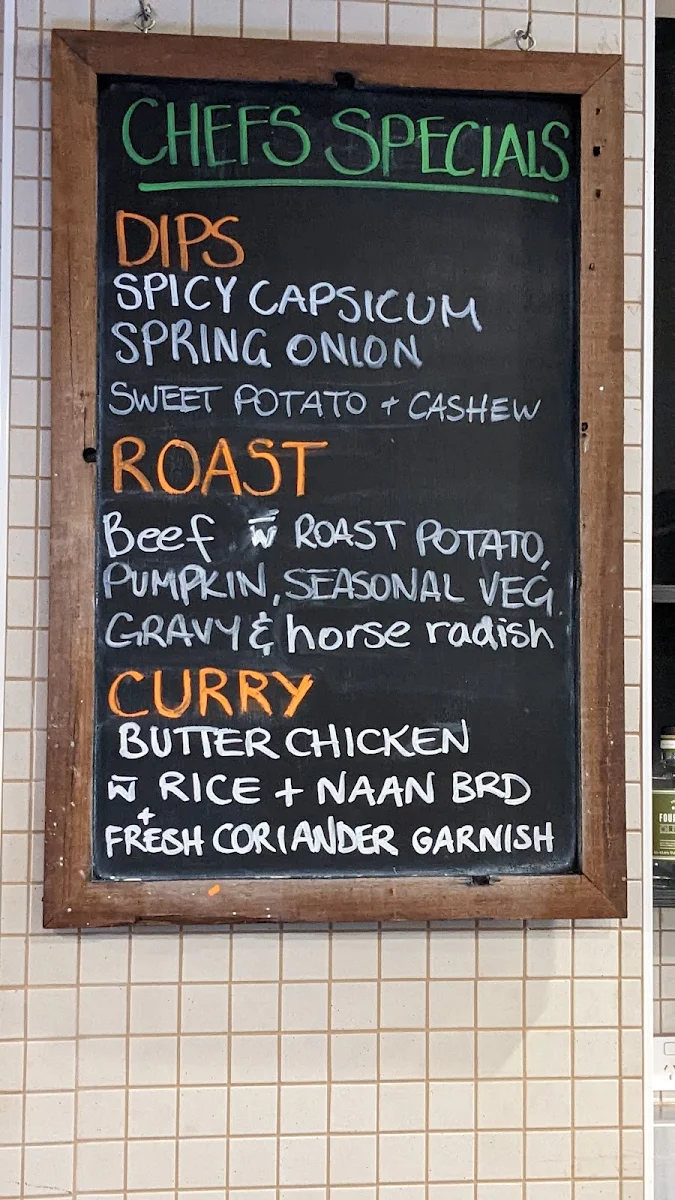 CHEFS SPECIALS
DIPS
SPICY CAPSICUM
SPRING ONION
SWEET POTATO + CASHEW
ROAST
Beef w̅ ROAST POTATO,
PUMPKIN, SEASONAL VEG.
GRAVY & horse radish
CURRY
BUTTER CHICKEN
w̅ RICE + NAAN BRD
+
FRESH CORIANDER GARNISH